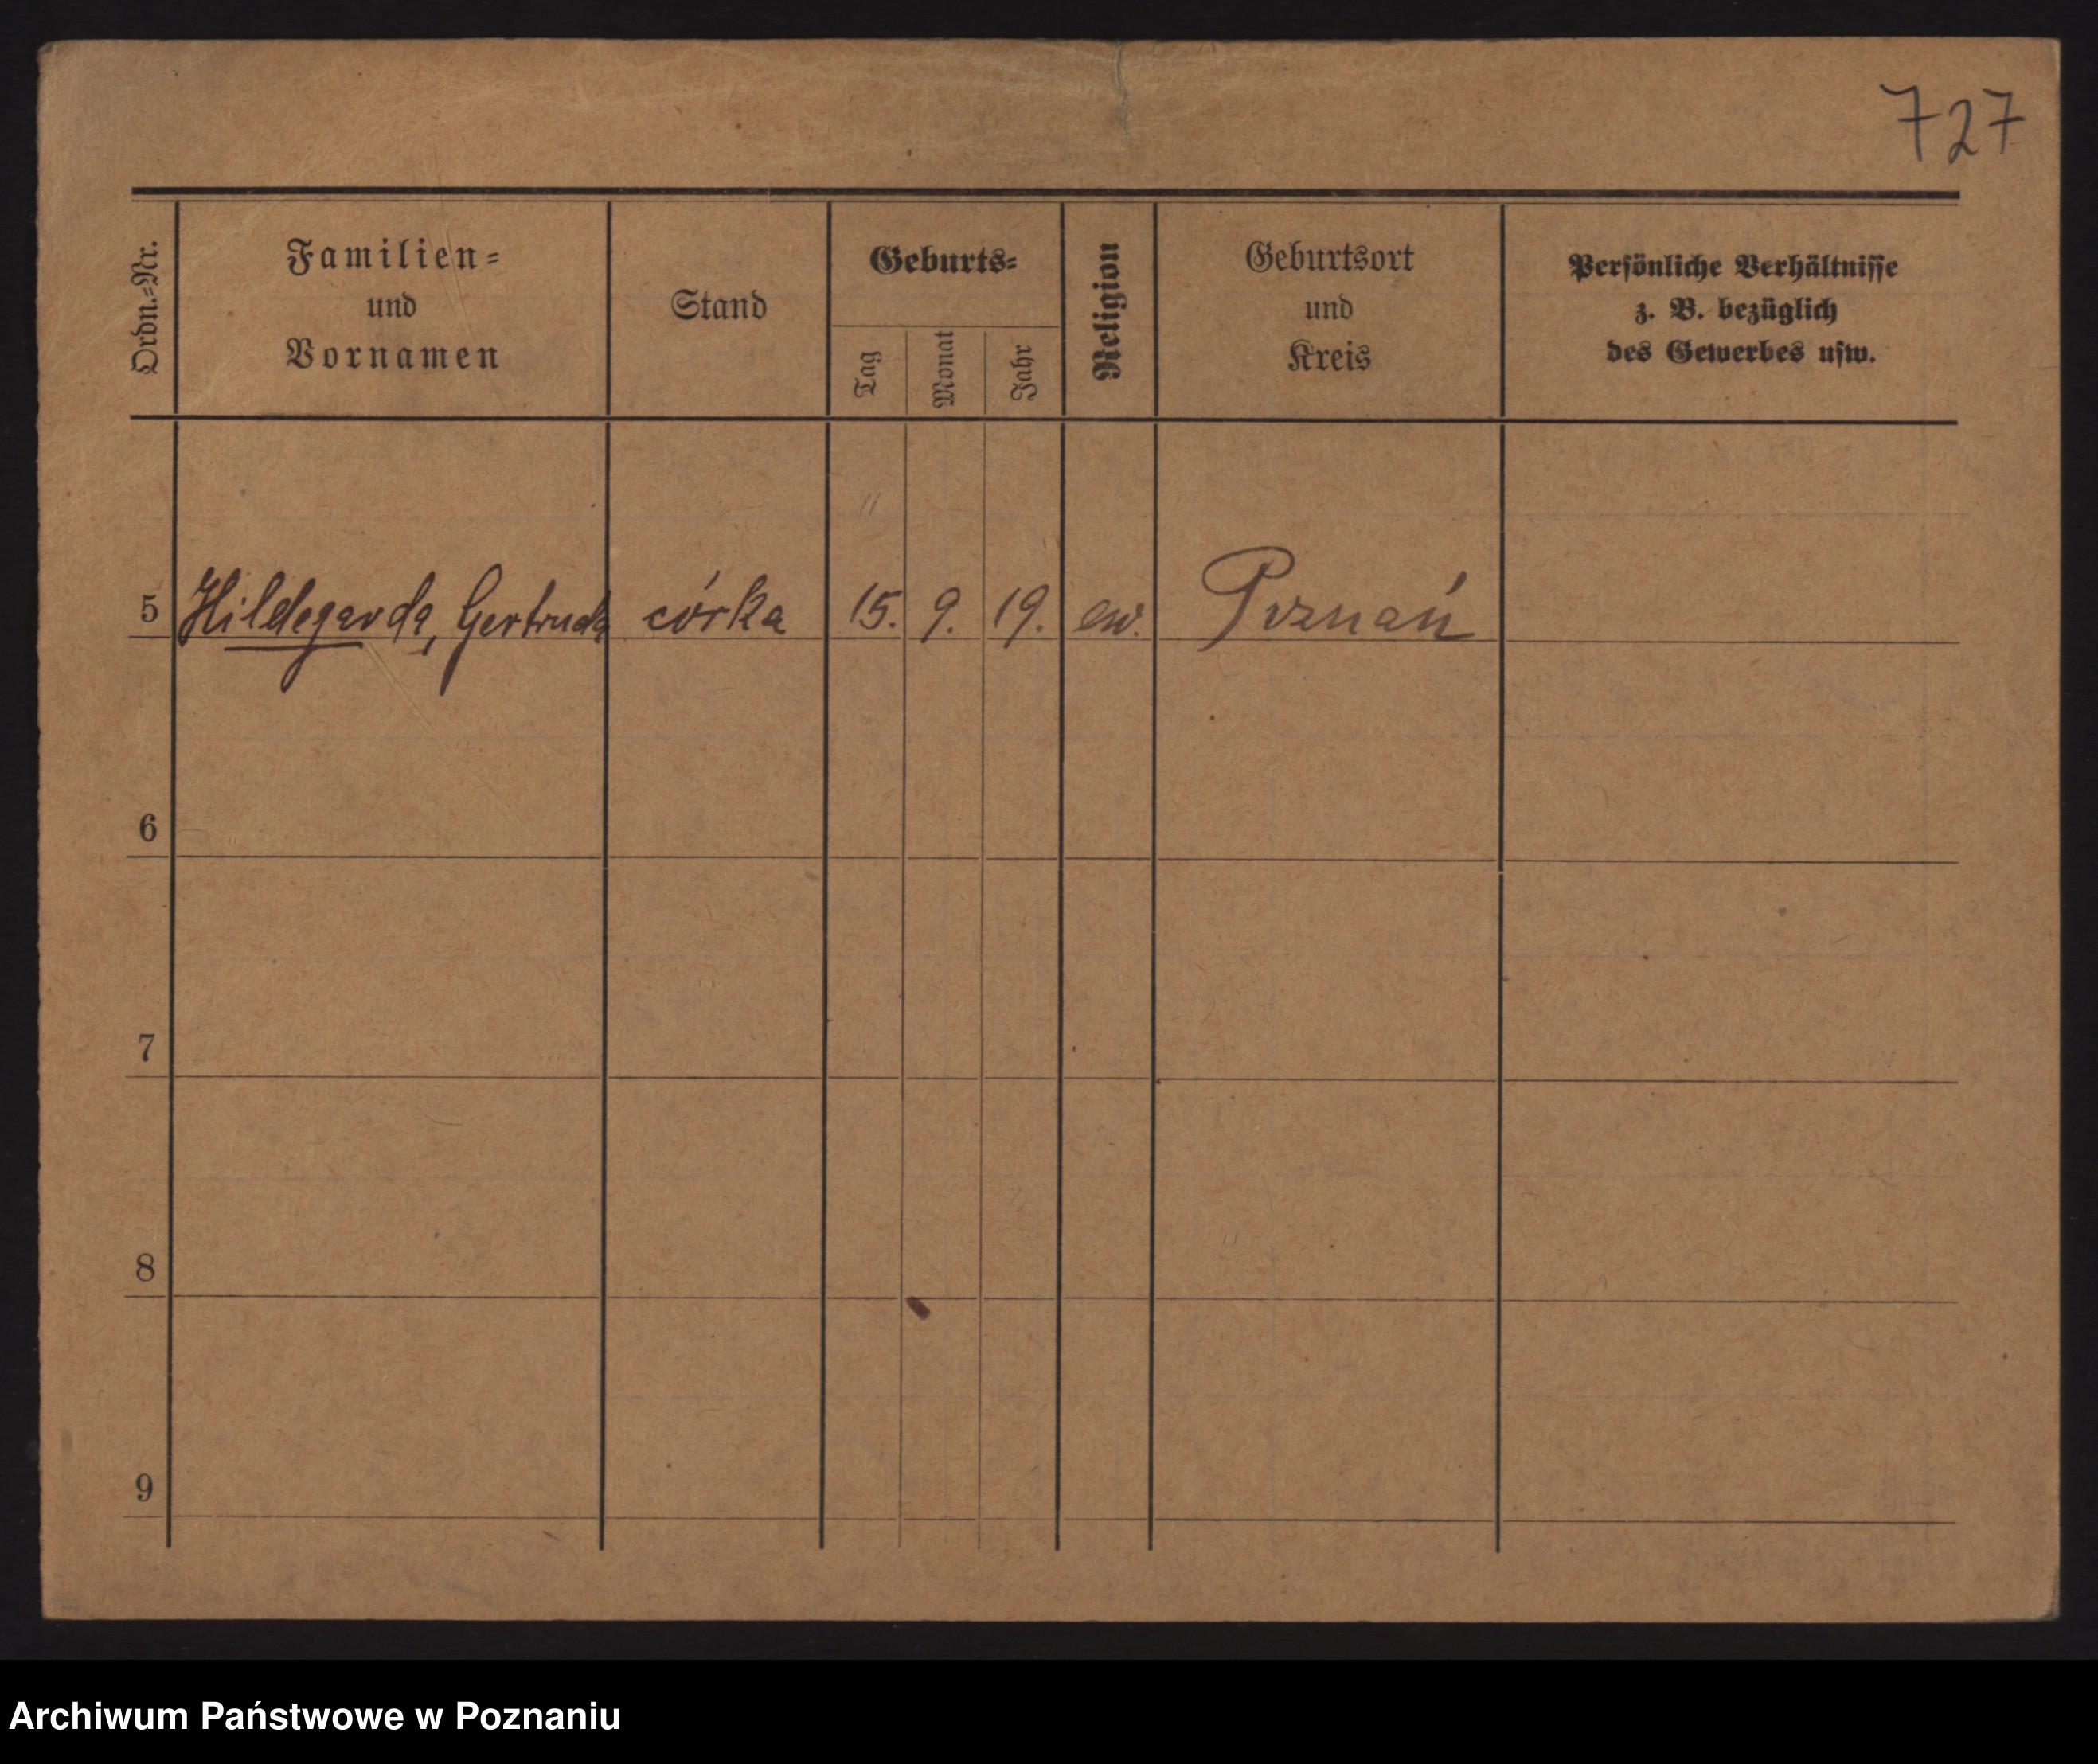 727
Ordn.-Nr.
Familien-
und
Vornamen
Stand
Geburts-
Tag
Monat
Jahr
Religion
Geburtsort
und
Kreis
Persönliche Verhältnisse
z. B. bezüglich
des Gewerbes usw.
5 Hildegarda, Gertruda córka 15. 9. 19. ew. Poznań
6
7
8
9
Archiwum Państwowe w Poznaniu